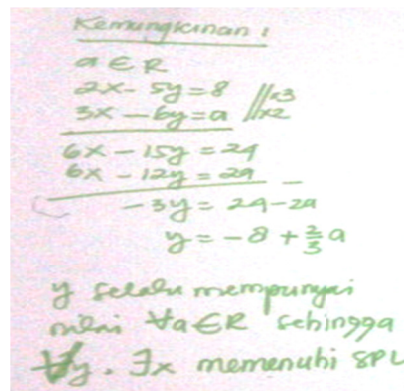 Kemungkinan :
a ∈ R
2x - 5y = 8 // x3
3x - 6y = a // x2
6x - 15y = 24
6x - 12y = 2a
-
- 3y = 24 - 2a
y = - 8 + 2/3 a
y selalu mempunyai
nilai ∀a ∈ R sehingga
∀y. ∃x memenuhi SPL